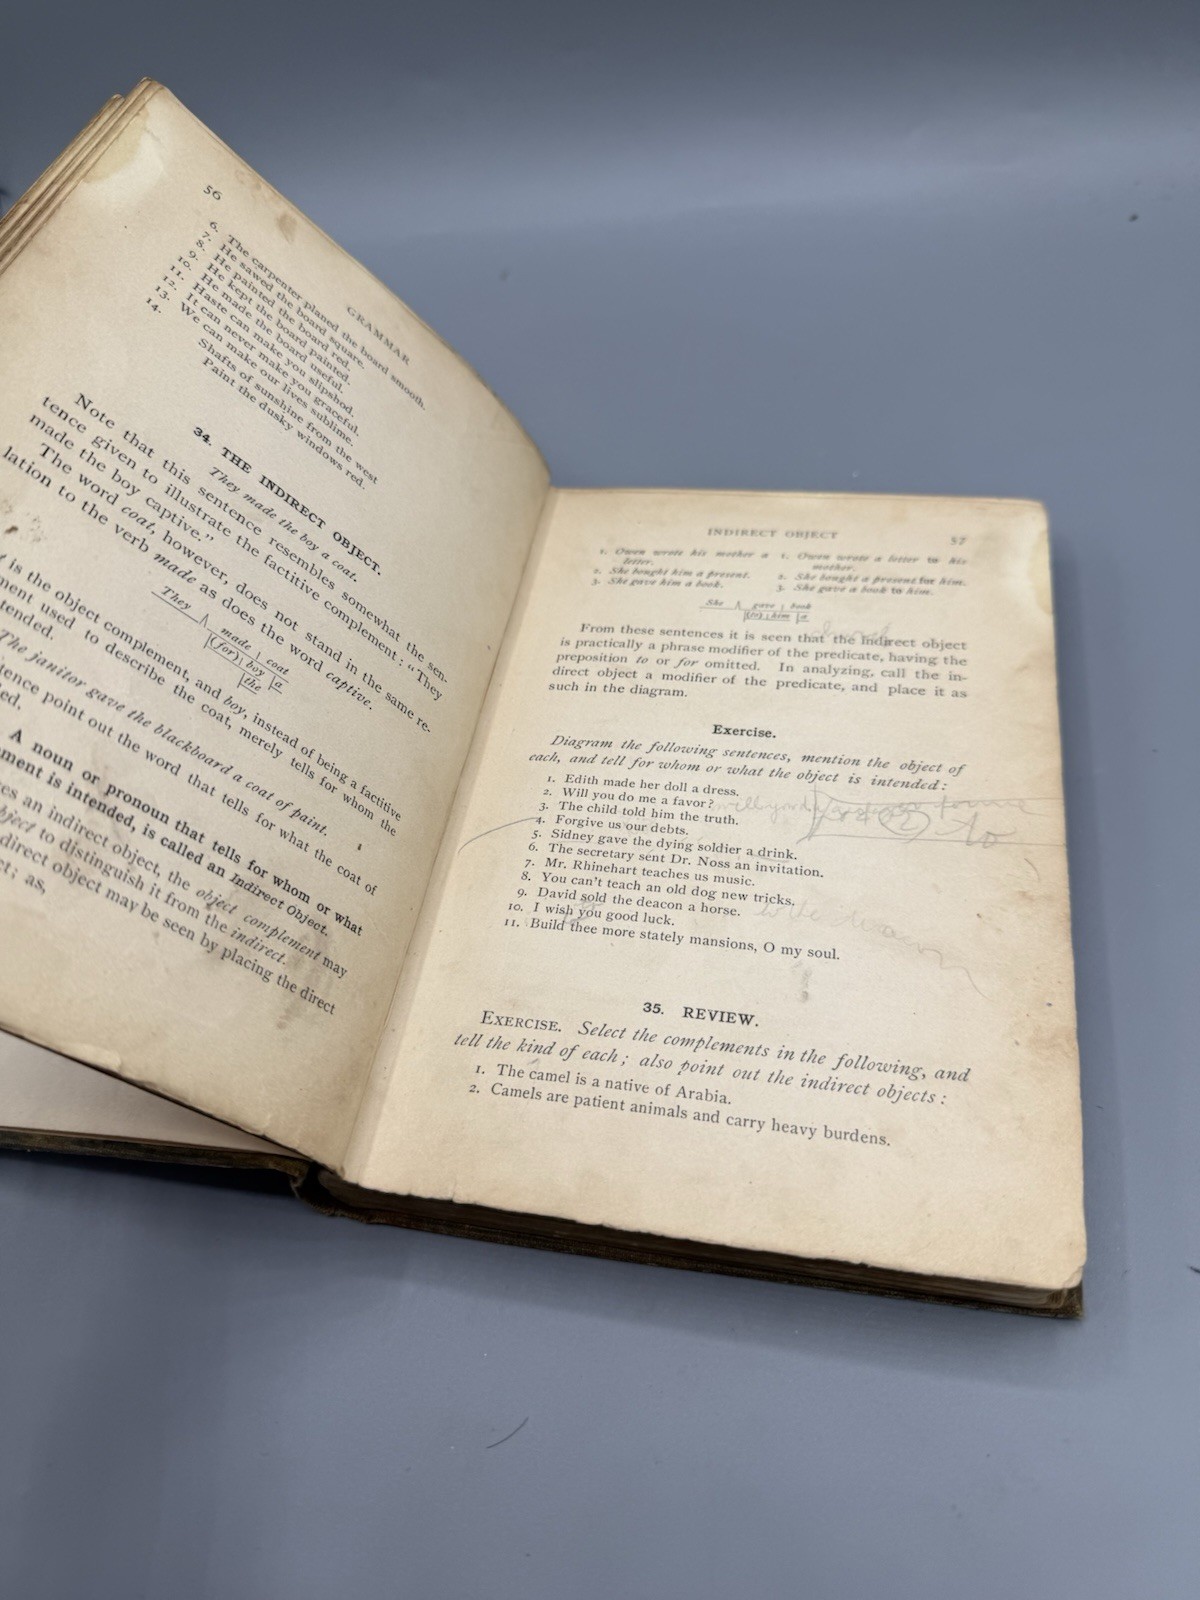 56
GRAMMAR
6. The carpenter planed the board smooth.
7. He sawed the board square.
8. He painted the board red.
9. He kept the board painted.
10. He made the board useful.
11. Haste can make you slipshod.
12. It can never make you graceful.
13. We can make our lives sublime.
14. Shafts of sunshine from the west
Paint the dusky windows red.
34. THE INDIRECT OBJECT.
They made the boy a coat.
Note that this sentence resembles somewhat the sen-
tence given to illustrate the factitive complement: "They
made the boy captive."
The word coat, however, does not stand in the same re-
lation to the verb made as does the word captive.
They made coat
(for) boy a
the
is the object complement, and boy, instead of being a factitive
ment used to describe the coat, merely tells for whom the
tended.
The janitor gave the blackboard a coat of paint.
tence point out the word that tells for what the coat of
ed.
A noun or pronoun that tells for whom or what
ment is intended, is called an Indirect Object.
es an indirect object, the object complement may
bject to distinguish it from the indirect.
direct object may be seen by placing the direct
ct; as,
INDIRECT OBJECT
57
1. Owen wrote his mother a letter.
2. She bought him a present.
3. She gave him a book.
1. Owen wrote a letter to his mother.
2. She bought a present for him.
3. She gave a book to him.
She gave book
(to) him a
From these sentences it is seen that the indirect object
is practically a phrase modifier of the predicate, having the
preposition to or for omitted. In analyzing, call the in-
direct object a modifier of the predicate, and place it as
such in the diagram.
Exercise.
Diagram the following sentences, mention the object of
each, and tell for whom or what the object is intended:
1. Edith made her doll a dress.
2. Will you do me a favor?
3. The child told him the truth.
4. Forgive us our debts.
5. Sidney gave the dying soldier a drink.
6. The secretary sent Dr. Noss an invitation.
7. Mr. Rhinehart teaches us music.
8. You can't teach an old dog new tricks.
9. David sold the deacon a horse.
10. I wish you good luck.
11. Build thee more stately mansions, O my soul.
to
35. REVIEW.
EXERCISE. Select the complements in the following, and
tell the kind of each; also point out the indirect objects:
1. The camel is a native of Arabia.
2. Camels are patient animals and carry heavy burdens.